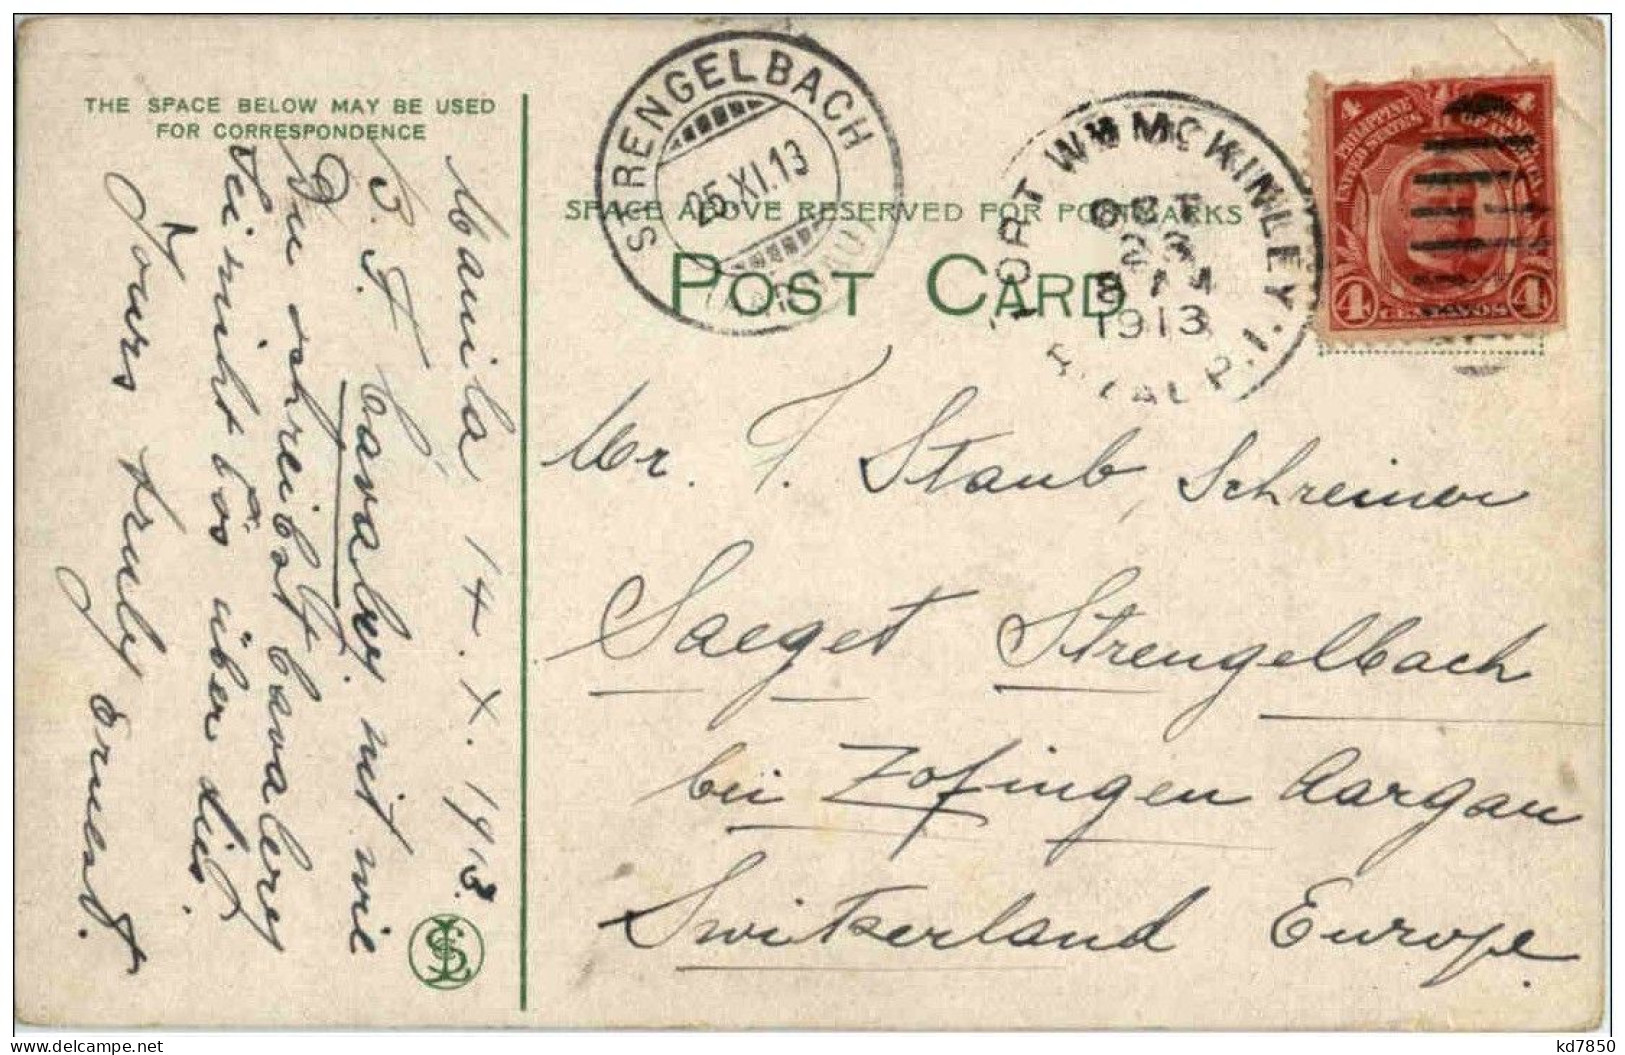 THE SPACE BELOW MAY BE USED
FOR CORRESPONDENCE
SPACE ABOVE RESERVED FOR POSTMARKS
POST CARD
STRENGELBACH
25.XI.13
FORT WM MCKINLEY
OCT
1913
RIZAL P.I.
4 4
PHILIPPINE
UNITED STATES
4 CENTAVOS 4
Manila 14. X. 1913.
Cavalry, nit wie
Du schreibst Cavalery
Sei nicht bös über dies
Yours truly Ernest.
Mr. F. Staub, Schreiner
Saeget Strengelbach
bei Zofingen Aargau
Switzerland Europe.
kd7850